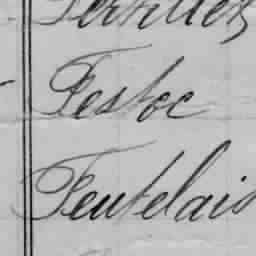 Festoc
Feutelais